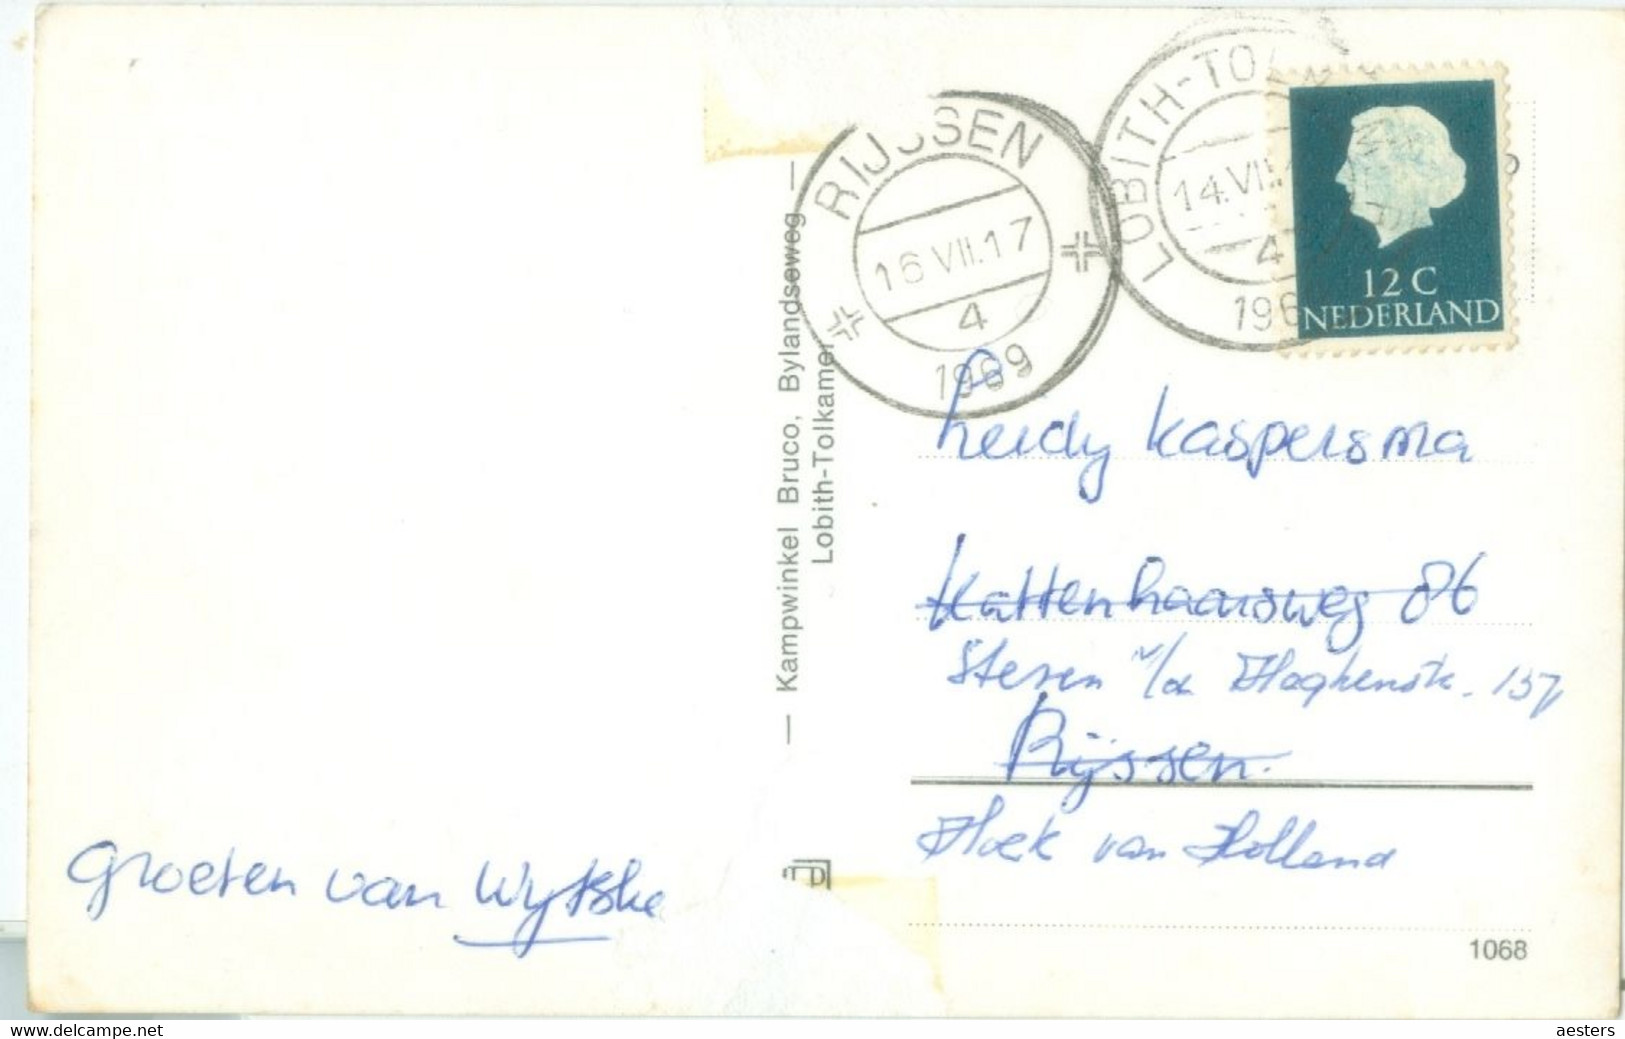 RIJSSEN
16 VII.17
4
1969
LOBITH-TO
14.VII
4
196
12 C
NEDERLAND
— Kampwinkel Bruco, Bylandseweg —
Lobith-Tolkamer
Heidy Kaspersma
Kattenhaarsweg 86
157
Rijssen.
Hoek van Holland
Groeten van Wytske
1068
www.delcampe.net
aesters